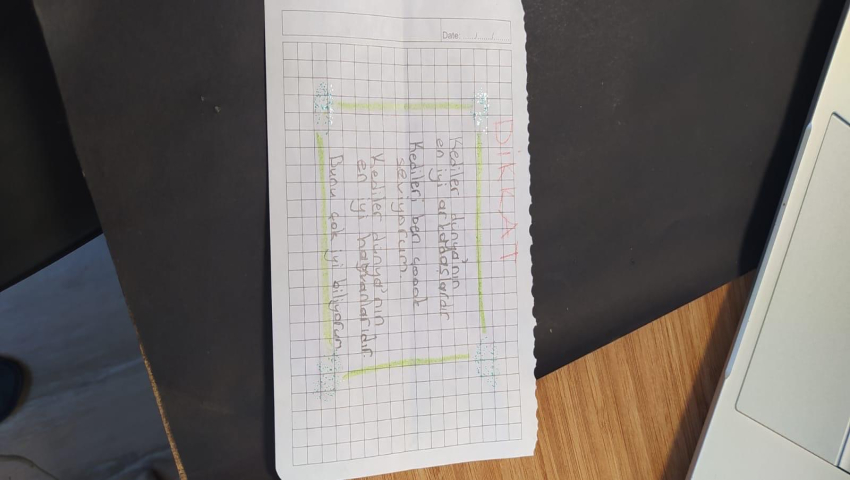 Date: ...../...../
DİKKAT
Kediler dünya'nın
en iyi arkadaşlardır
Kedileri ben çoook
seviyorum.
Kediler dünya'nın
en iyi hayvanlarıdır.
Bunu çok iyi biliyorum